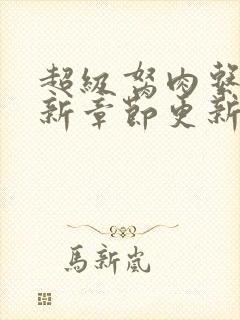 超級弩肉
新章節更新
馬新嵐